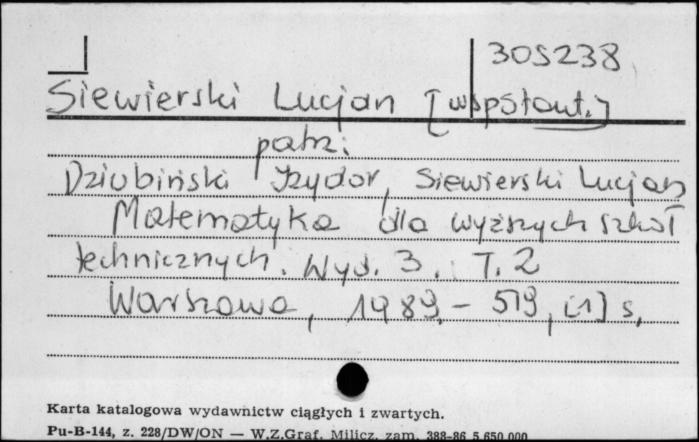 305238
Siewierski Lucjan [współaut.]
patrz:
Dziubiński Izydor, Siewierski Lucjan
Matematyka dla wyższych szkół
technicznych. Wyd. 3. T. 2
Warszawa, 1989. - 519, [1] s.
Karta katalogowa wydawnictw ciągłych i zwartych.
Pu-B-144, z. 228/DW/ON — W.Z.Graf. Milicz, zam. 388-86 5.650.000